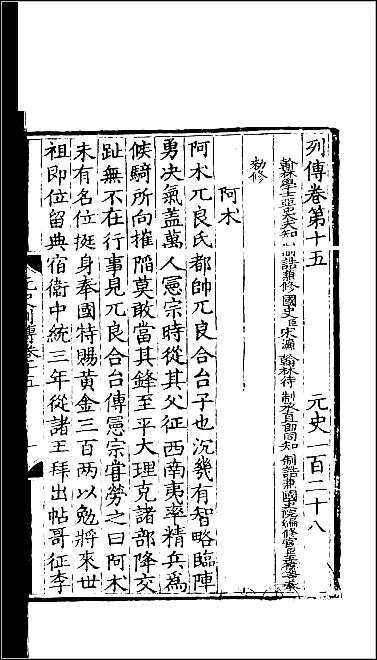 列傳卷第十五　元史一百二十八
翰林學士亞中大夫知制誥兼修國史臣宋濂　翰林待制承直郎同知制誥兼國史院編修官臣王禕等奉
勑修
阿朮
阿朮兀良氏都帥兀良合台子也沉幾有智略臨陣
勇决氣盖萬人憲宗時從其父征西南夷率精兵爲
候騎所向摧陷莫敢當其鋒至平大理克諸部降交
趾無不在行事見兀良合台傳憲宗甞勞之曰阿朮
未有名位挺身奉國特賜黄金三百两以勉將來世
祖即位留典宿衞中統三年從諸王拜出帖哥征李
元史列傳卷十五